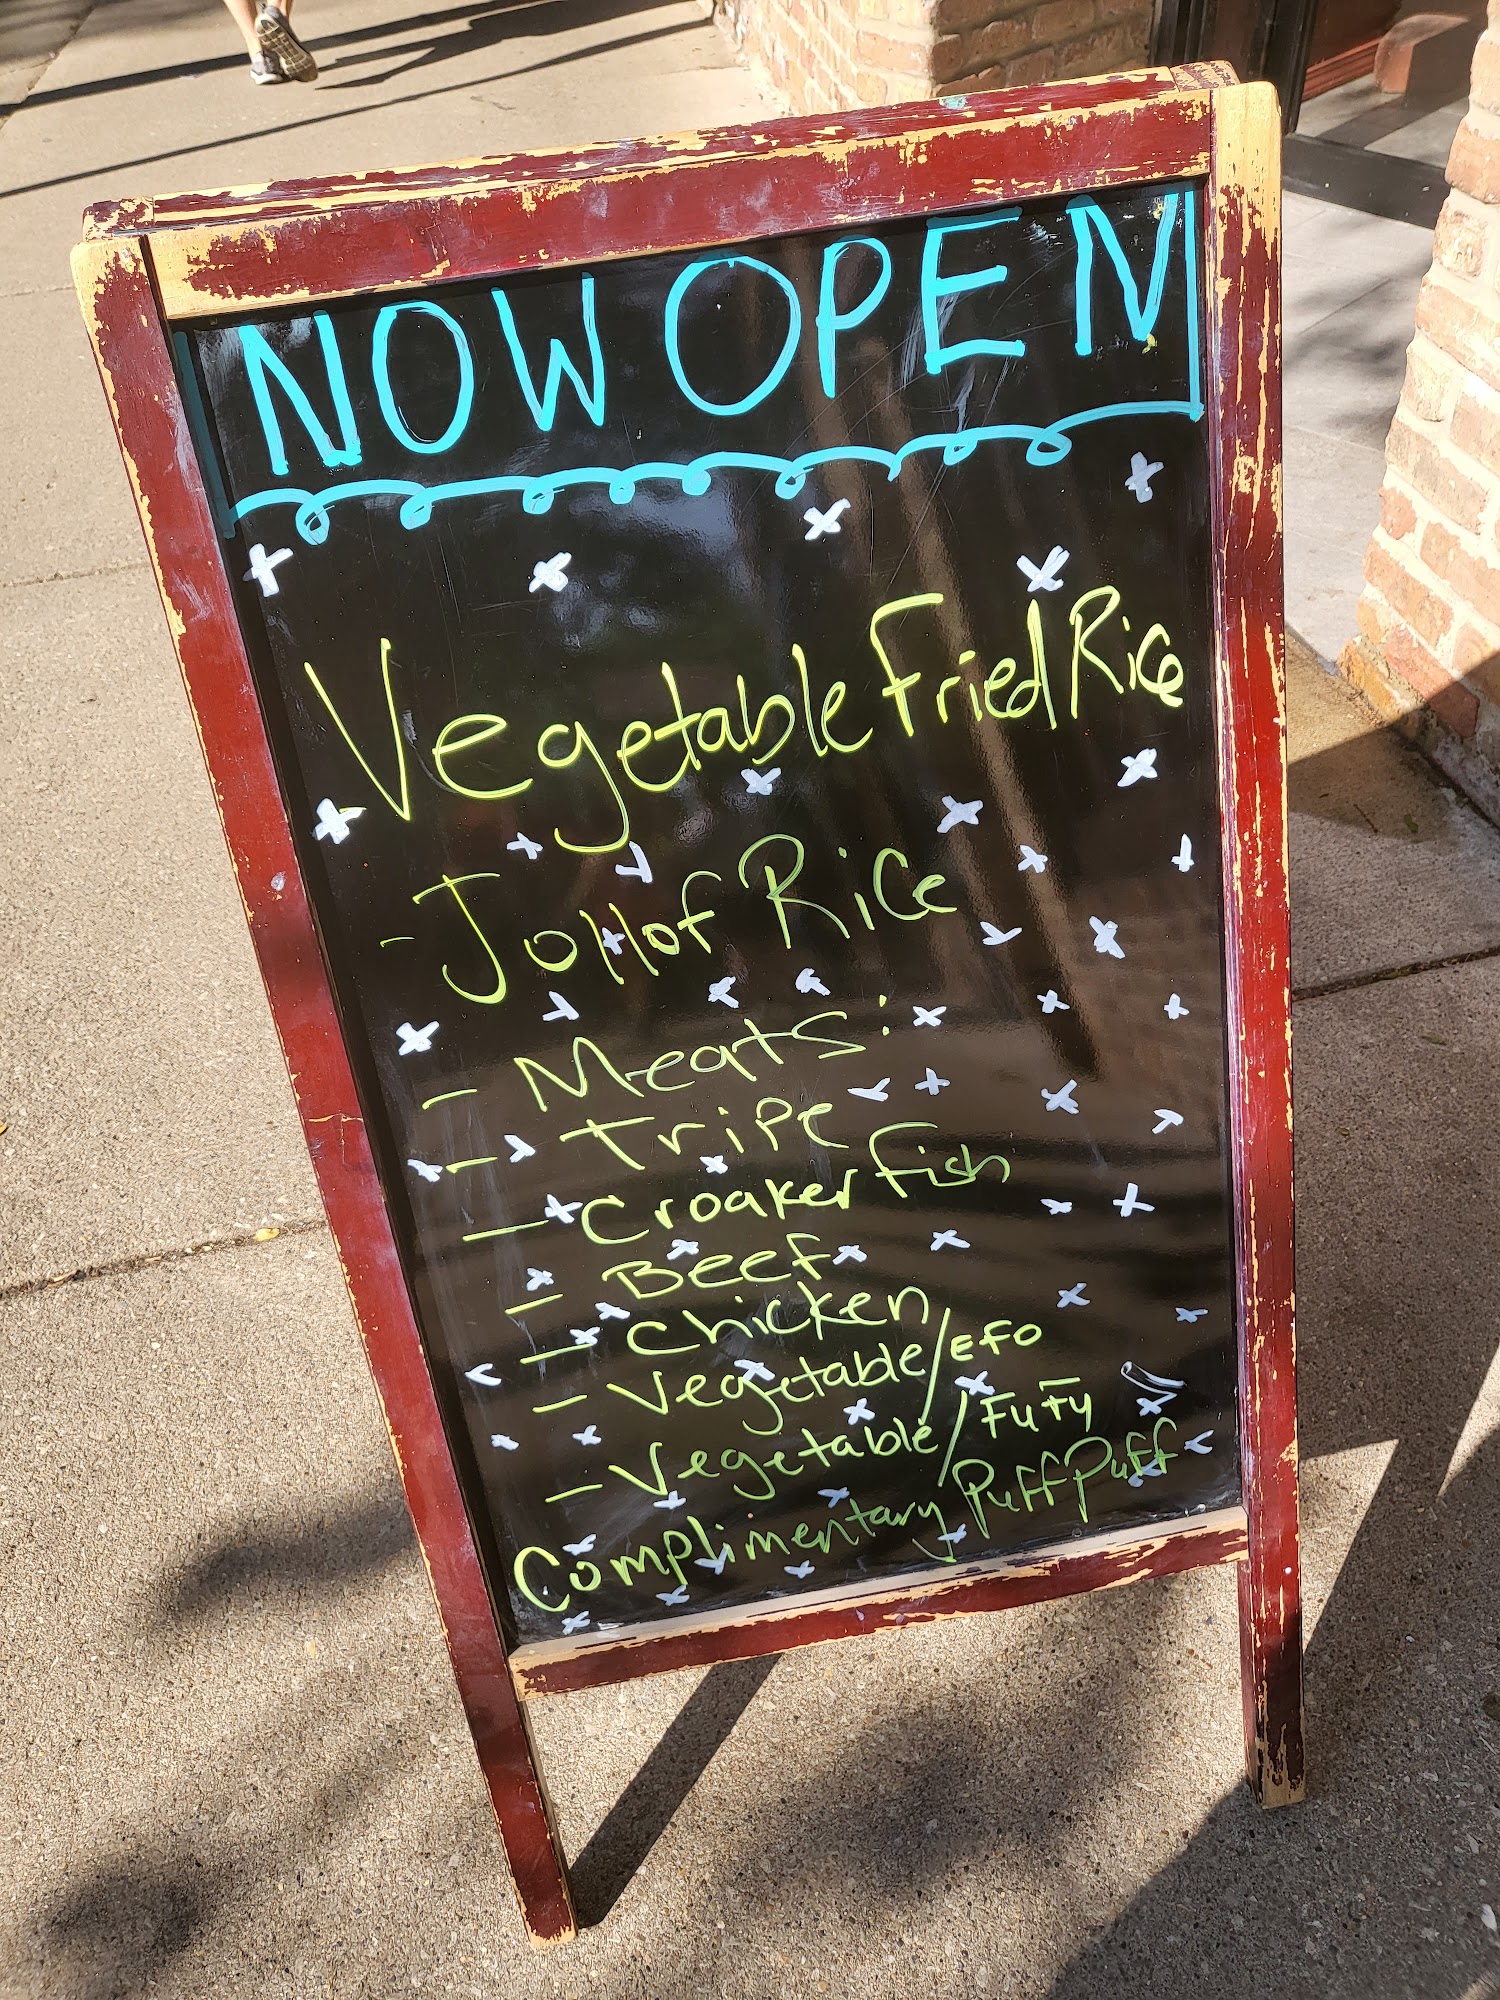 NOW OPEN
Vegetable Fried Rice
- Jollof Rice
- Meats:
- Tripe
- Croaker Fish
- Beef
- Chicken
- Vegetable/EFO
- Vegetable/FuFu
Complimentary Puff Puff